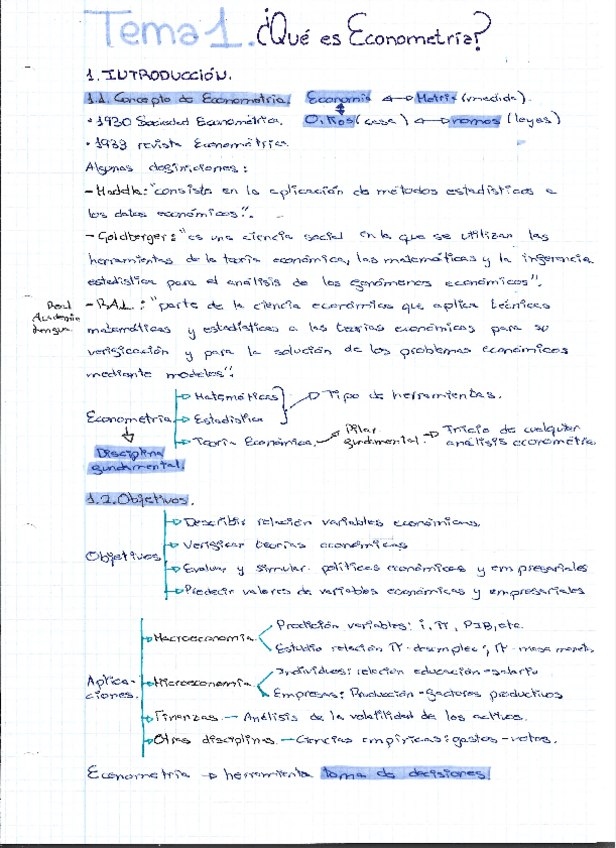 Tema 1. ¿Qué es Econometría?
1. INTRODUCCIÓN.
1.1. Concepto de Econometría. Economía ↔ Metrix (medida).
· 1930 Sociedad Econométrica. Oikos (casa) ↔ nomos (leyes)
· 1933 revista Econométrica.
Algunas definiciones:
- Maddala: "consiste en la aplicación de métodos estadísticos a
los datos económicos".
- Goldberger: "es una ciencia social en la que se utilizan las
herramientas de la teoría económica, las matemáticas y la inferencia
estadística para el análisis de los fenómenos económicos".
Real Academia Lengua
- RAL: "parte de la ciencia económica que aplica técnicas
matemáticas y estadísticas a las teorías económicas para su
verificación y para la solución de los problemas económicos
mediante modelos".
Econometría
→ Matemáticas
→ Estadística
→ Tipo de herramientas.
→ Teoría Económica. → Pilar fundamental. → Inicio de cualquier análisis econometría.
Disciplina
fundamental.
1.2. Objetivos.
Objetivos
→ Describir relación variables económicas.
→ Verificar teorías económicas
→ Evaluar y simular políticas económicas y empresariales
→ Predecir valores de variables económicas y empresariales
Aplica-
ciones.
→ Macroeconomía
Predicción variables: i, π, PIB, etc.
Estudio relación π-desempleo; π-masa monet.
→ Microeconomía
Individuos: relación educación-salario
Empresas: Producción-factores productivos
→ Finanzas. - Análisis de la volatilidad de los activos.
→ Otras disciplinas. - Ciencias empíricas: gastos-votos.
Econometría → herramienta toma de decisiones.